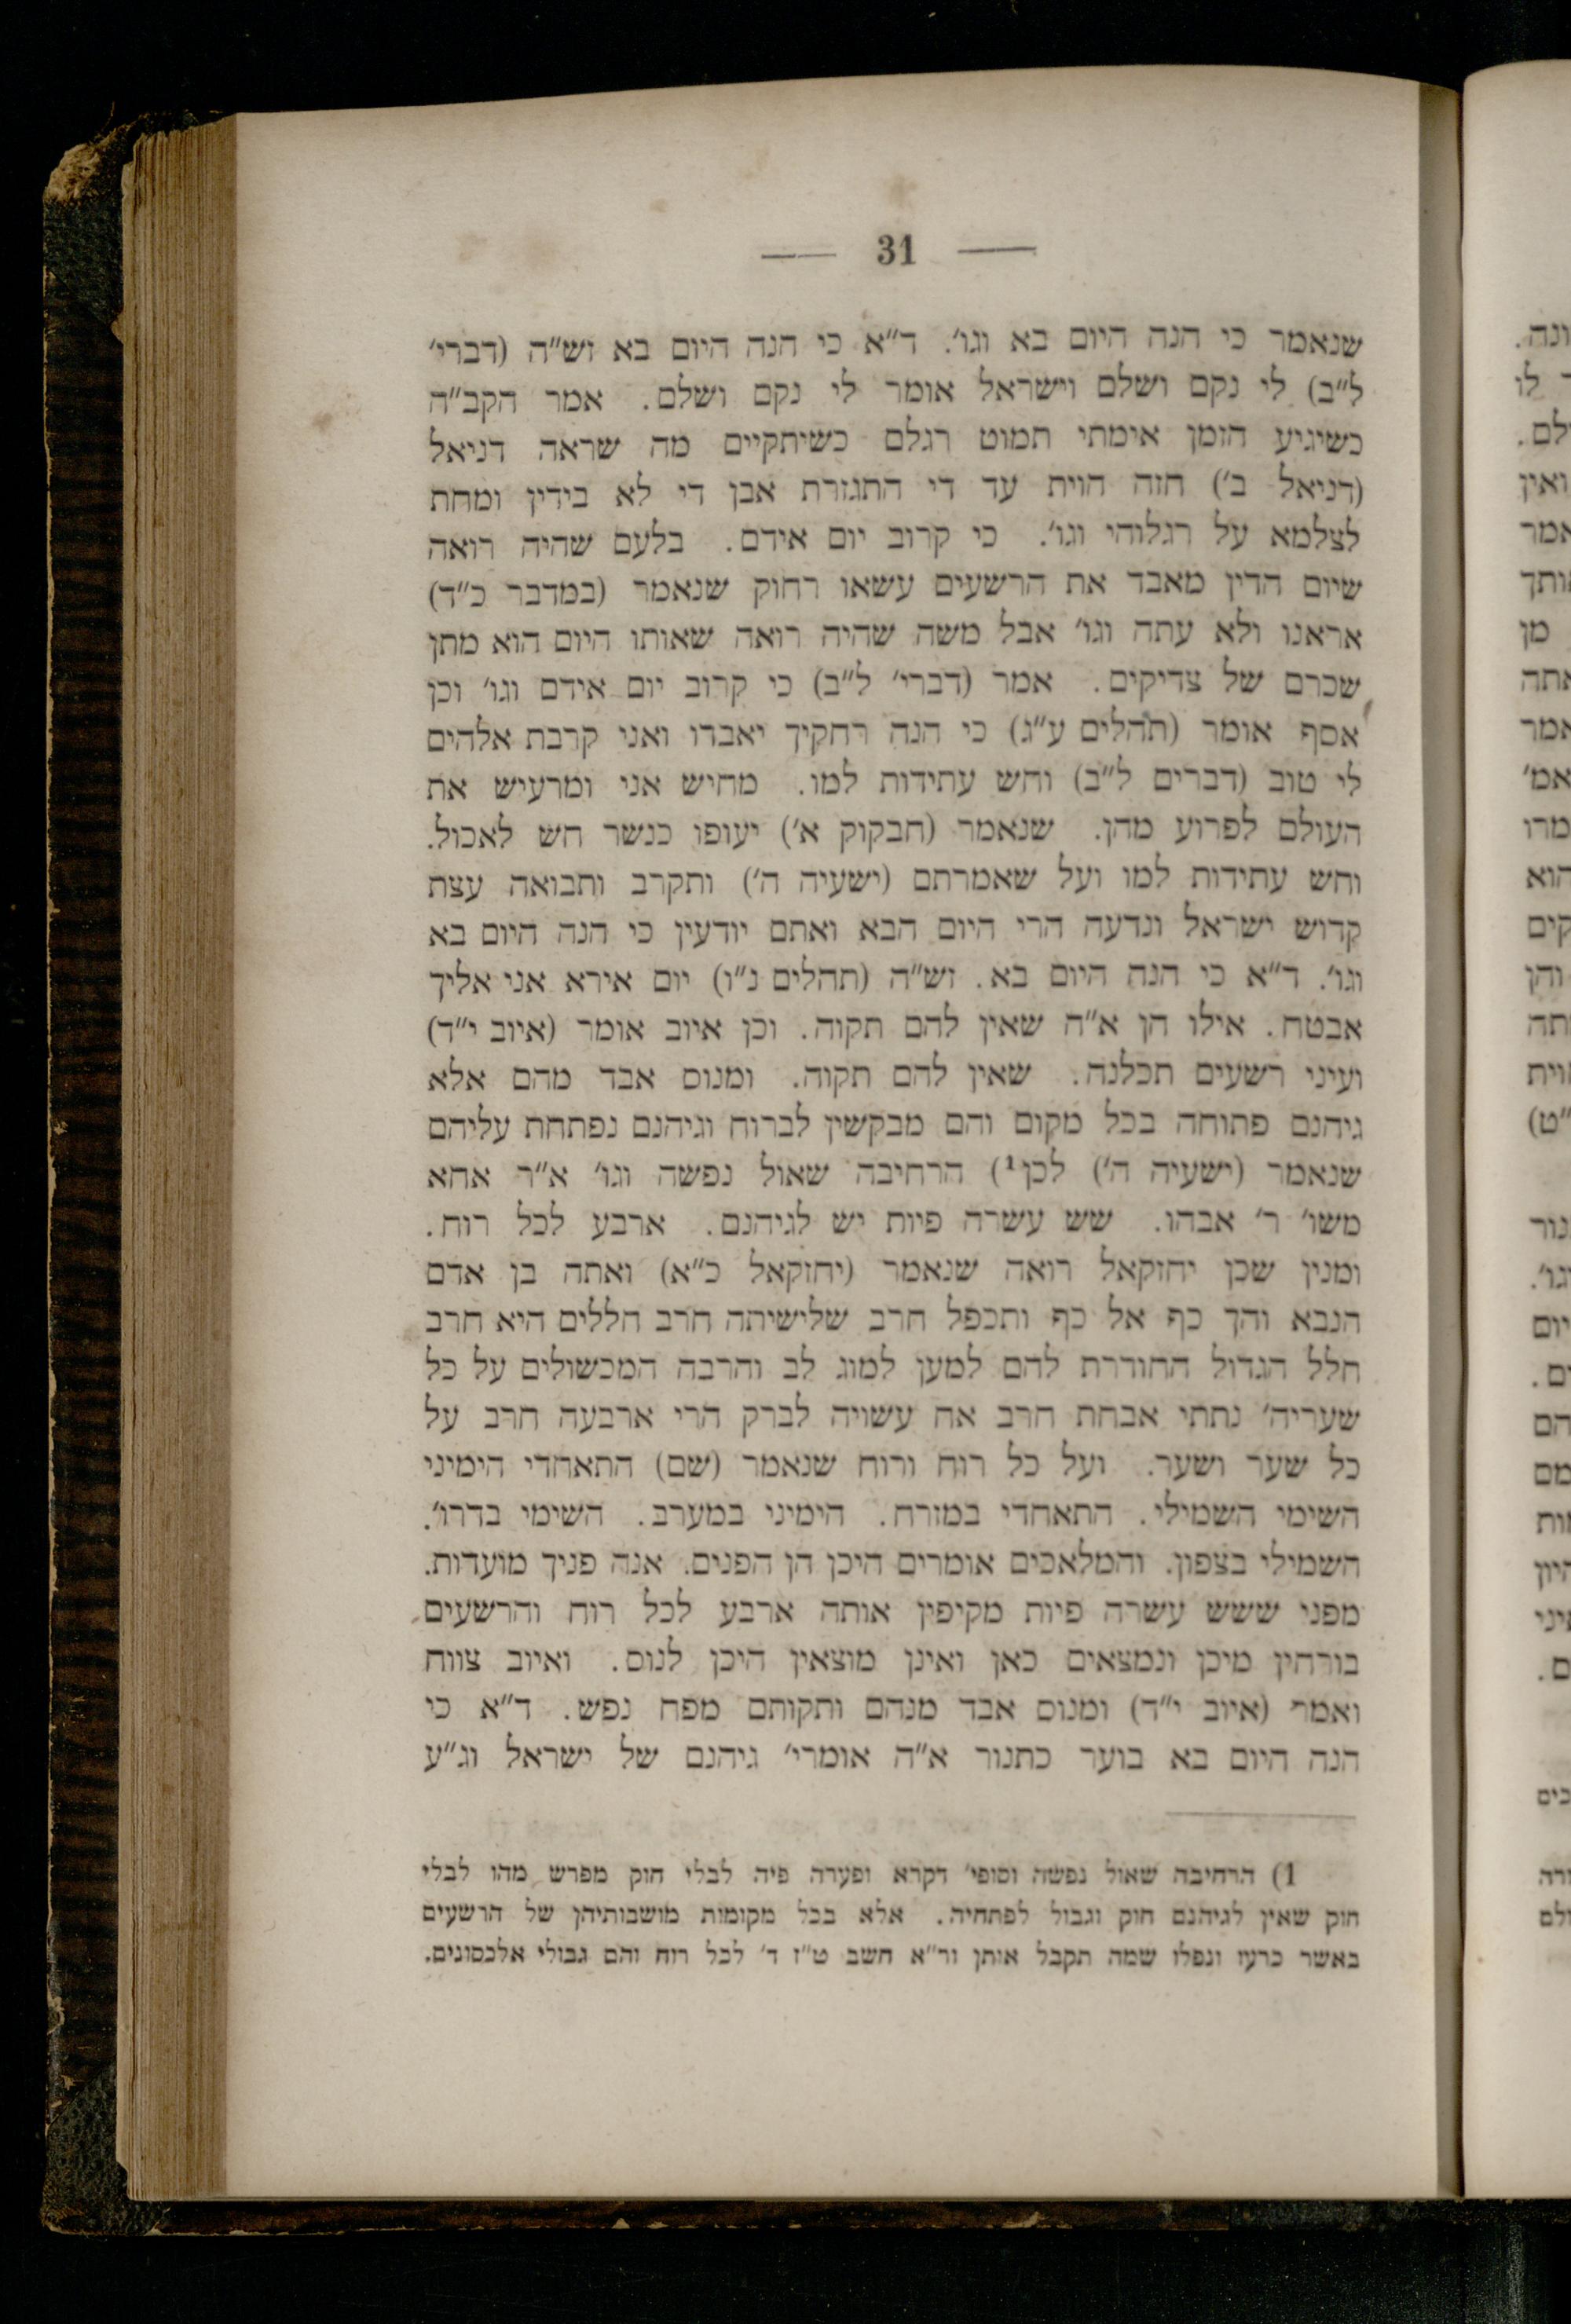 — 31 —
שנאמר כי הנה היום בא וגו׳. ד״א כי הנה היום בא זש״ה (דברי׳
ל״ב) לי נקם ושלם וישראל אומר לי נקם ושלם. אמר הקב״ה
כשיגיע הזמן אימתי תמוט רגלם כשיתקיים מה שראה דניאל
(דניאל ב׳) חזה הוית עד די התגזרת אבן די לא בידין ומחת
לצלמא על רגלוהי וגו׳. כי קרוב יום אידם. בלעם שהיה רואה
שיום הדין מאבד את הרשעים עשאו רחוק שנאמר (במדבר כ״ד)
אראנו ולא עתה וגו׳ אבל משה שהיה רואה שאותו היום הוא מתן
שכרם של צדיקים. אמר (דברי׳ ל״ב) כי קרוב יום אידם וגו׳ וכן
אסף אומר (תהלים ע״ג) כי הנה רחקיך יאבדו ואני קרבת אלהים
לי טוב (דברים ל״ב) וחש עתידות למו. מחיש אני ומרעיש את
העולם לפרוע מהן. שנאמר (חבקוק א׳) יעופו כנשר חש לאכול.
וחש עתידות למו ועל שאמרתם (ישעיה ה׳) ותקרב ותבואה עצת
קדוש ישראל ונדעה הרי היום הבא ואתם יודעין כי הנה היום בא
וגו׳. ד״א כי הנה היום בא. זש״ה (תהלים נ״ו) יום אירא אני אליך
אבטח. אילו הן א״ה שאין להם תקוה. וכן איוב אומר (איוב י״ד)
ועיני רשעים תכלנה. שאין להם תקוה. ומנוס אבד מהם אלא
גיהנם פתוחה בכל מקום והם מבקשין לברוח וגיהנם נפתחת עליהם
שנאמר (ישעיה ה׳) לכן¹) הרחיבה שאול נפשה וגו׳ א״ר אחא
משו׳ ר׳ אבהו. שש עשרה פיות יש לגיהנם. ארבע לכל רוח.
ומנין שכן יחזקאל רואה שנאמר (יחזקאל כ״א) ואתה בן אדם
הנבא והך כף אל כף ותכפל חרב שלישיתה חרב חללים היא חרב
חלל הגדול החודרת להם למען למוג לב והרבה המכשולים על כל
שעריה׳ נתתי אבחת חרב אח עשויה לברק הרי ארבעה חרב על
כל שער ושער. ועל כל רוח ורוח שנאמר (שם) התאחדי הימיני
השימי השמילי. התאחדי במזרח. הימיני במערב. השימי בדרו׳.
השמילי בצפון. והמלאכים אומרים היכן הן הפנים. אנה פניך מועדות.
מפני ששש עשרה פיות מקיפין אותה ארבע לכל רוח והרשעים
בורחין מיכן ונמצאים כאן ואינן מוצאין היכן לנוס. ואיוב צווח
ואמר (איוב י״ד) ומנוס אבד מנהם ותקותם מפח נפש. ד״א כי
הנה היום בא בוער כתנור א״ה אומרי׳ גיהנם של ישראל וג״ע
1) הרחיבה שאול נפשה וסופי׳ דקרא ופערה פיה לבלי חוק מפרש מהו לבלי
חוק שאין לגיהנם חוק וגבול לפתחיה. אלא בכל מקומות מושבותיהן של הרשעים
באשר כרעו ונפלו שמה תקבל אותן ור״א חשב ט״ז ד׳ לכל רוח והם גבולי אלכסונים.